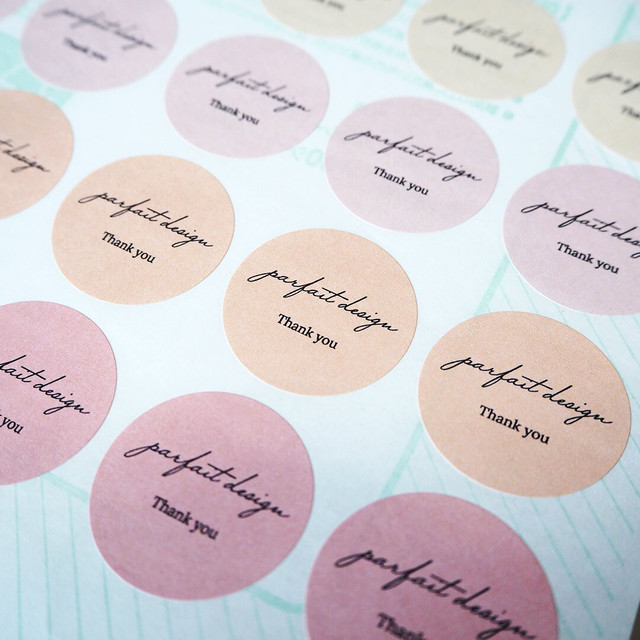 parfait design
Thank you
parfait design
Thank you
parfait design
Thank
parfait design
Thank you
parfait design
Thank you
parfait design
parfait design
Thank you
parfait design
Thank you
parfait design
Thank you
parfait design
Thank you
design
you
parfait design
Thank you
parfait design
Thank you